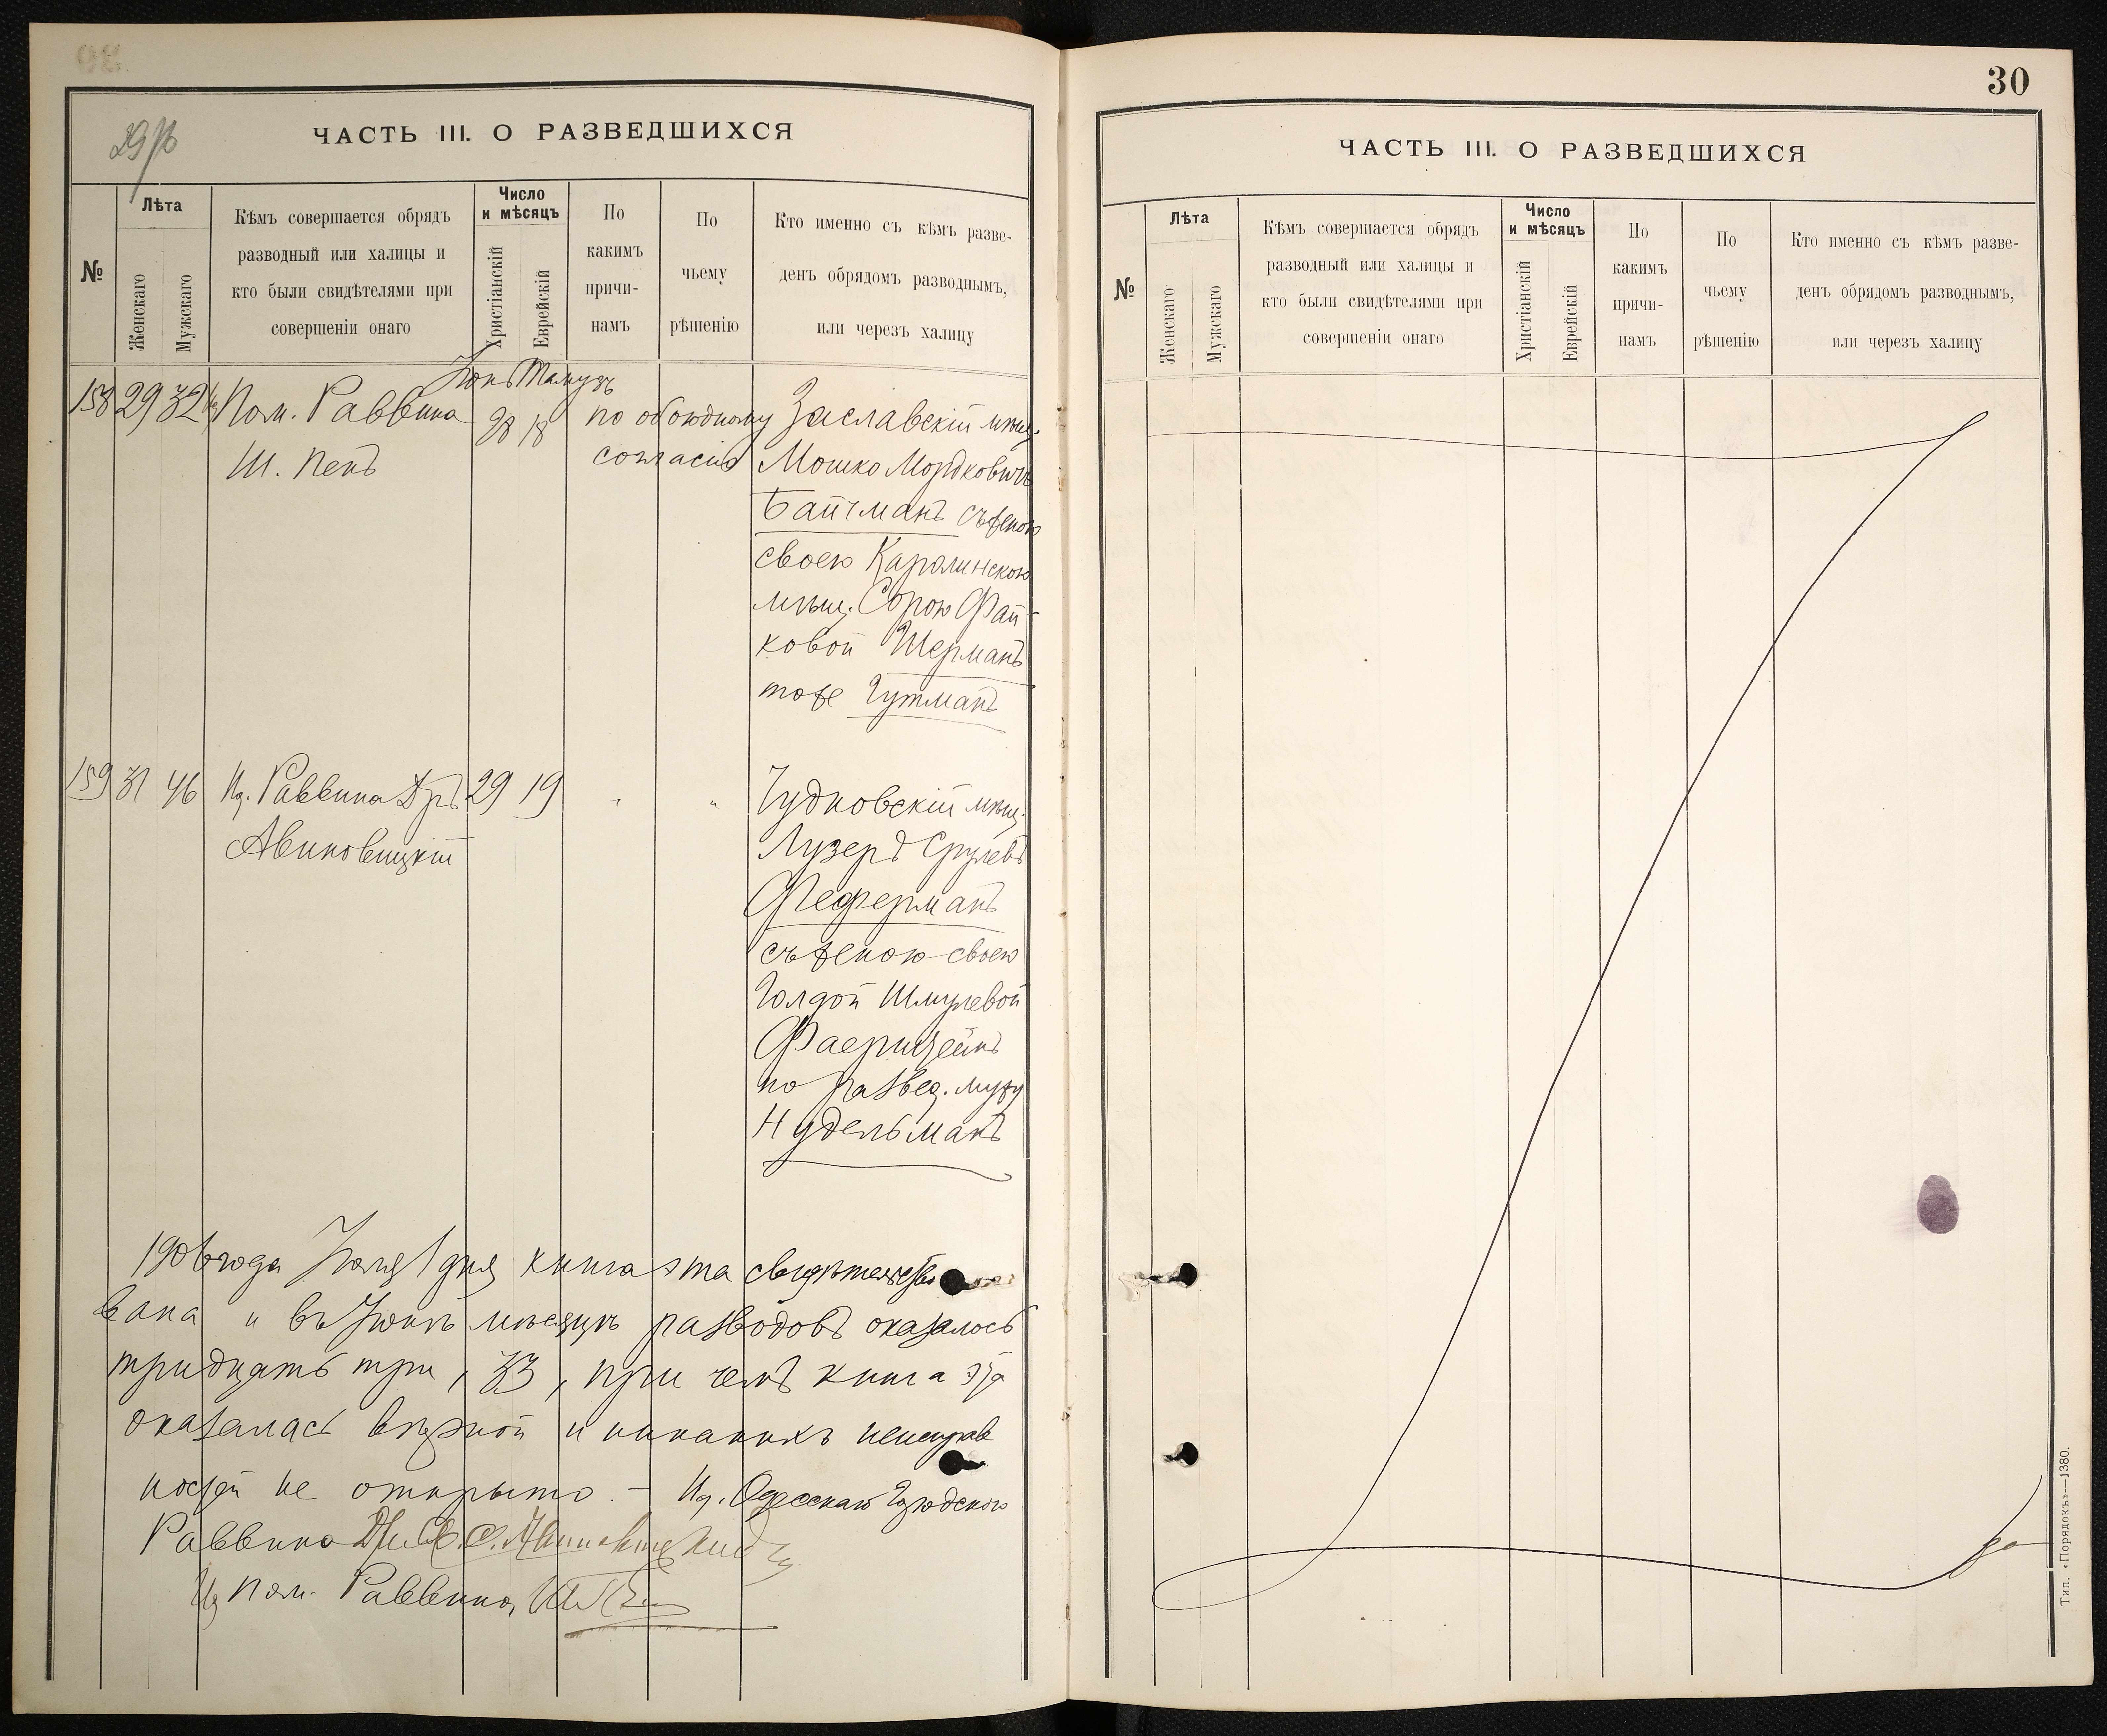 29 об
ЧАСТЬ III. О РАЗВЕДШИХСЯ
№
Лѣта
Женскаго
Мужскаго
Кѣмъ совершается обрядъ
разводный или халицы и
кто были свидѣтелями при
совершеніи онаго
Число
и мѣсяцъ
Христіанскій
Еврейскій
По
какимъ
причи-
намъ
По
чьему
рѣшенію
Кто именно съ кѣмъ разве-
денъ обрядомъ разводнымъ,
или черезъ халицу
Іюнь Тамузъ
158 29 32 Пом. Раввина 28 18 по обоюдному Заславскій мѣщ.
Ш. Пенъ согласію Мошко Мордковичъ
Байчманъ съ женою
своею Каролинскою
мѣщ. Сорою Фай-
ковой Шерманъ
тоже Гутманъ
159 31 46 И. Раввина Д-ръ 29 19 " " Чудновскій мѣщ.
Авиновицкій Лузеръ Срулевъ
Феферманъ
съ женою своею
Голдой Шмулевой
Фаерштейнъ
по развед. мужу
Нудельманъ
1906 года Іюля 1 дня книга эта свидѣтельство
вана и въ Іюнѣ мѣсяцѣ разводовъ оказалось
тридцать три, 33, при чемъ книга эта
оказалась вѣрной и никакихъ неисправ
ностей не открыто. — И. д. Одесскаго Городского
Раввина Д-ръ Авиновицкій
И д Пом. Раввина, Ш. Пенъ
30
ЧАСТЬ III. О РАЗВЕДШИХСЯ
№
Лѣта
Женскаго
Мужскаго
Кѣмъ совершается обрядъ
разводный или халицы и
кто были свидѣтелями при
совершеніи онаго
Число
и мѣсяцъ
Христіанскій
Еврейскій
По
какимъ
причи-
намъ
По
чьему
рѣшенію
Кто именно съ кѣмъ разве-
денъ обрядомъ разводнымъ,
или черезъ халицу
Тип. «Порядокъ»—1380.